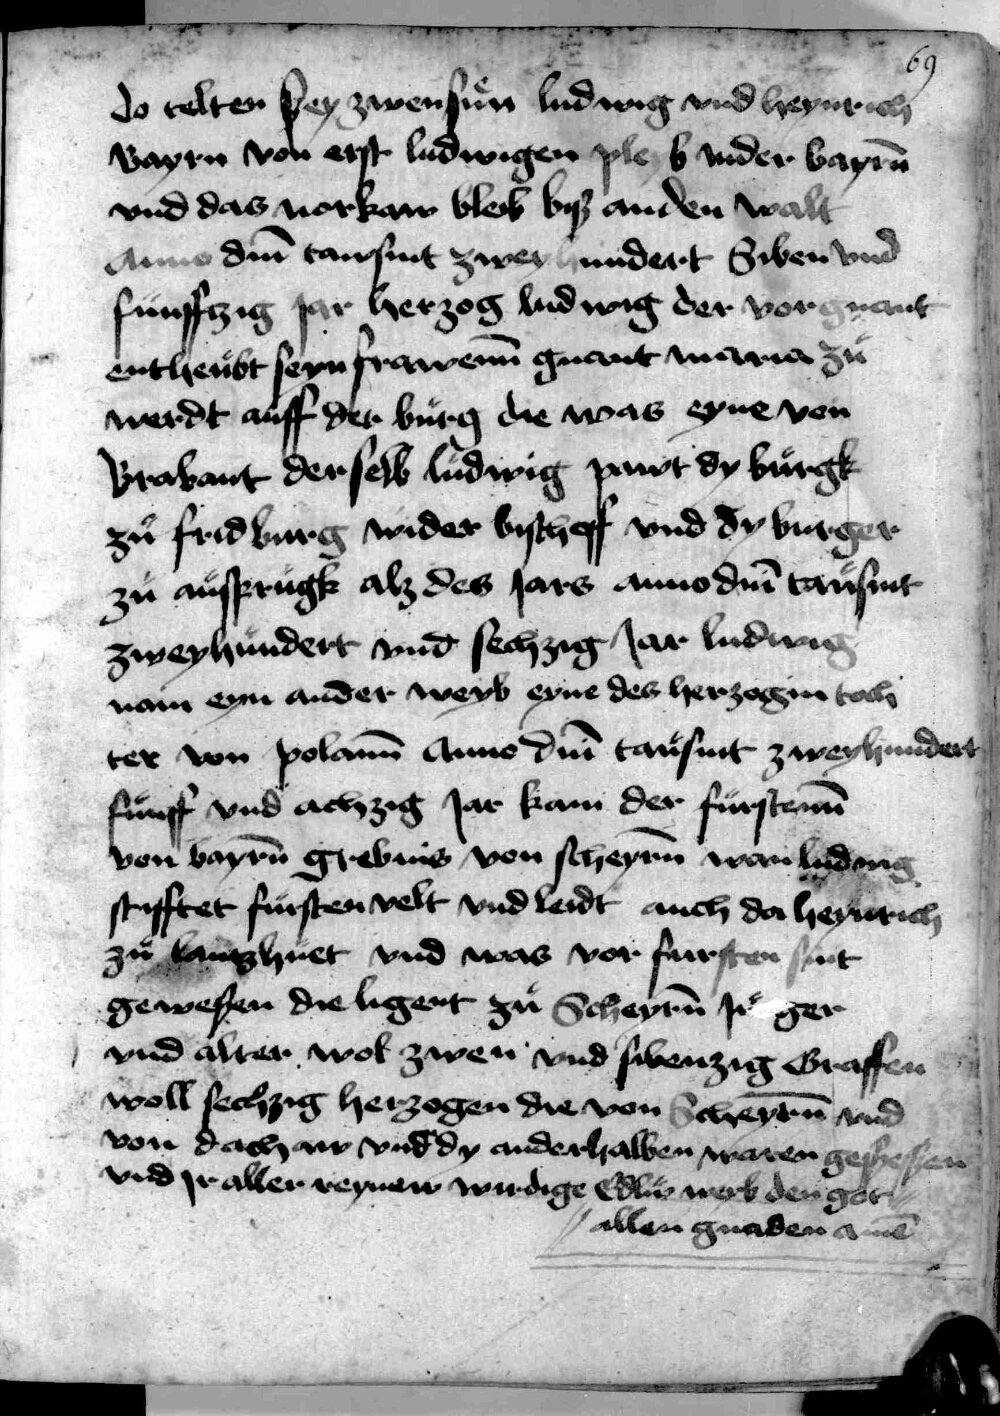 69
do telten sey zwen sün ludwig vnd heynrich
Bayrn von erst ludwigen pleyb nider bayrn̄
vnd das norkaw bleib biß an den walt
Anno dnī tausint zwey hundert Siben vnd
fünffzig Jar herzog ludwig der vorgnant
entheübt seyn frawenn̄ gnant maria zů
werdt auff der bürg die was eyne von
Brabant der selb lüdwig pawt dy bürgk
zů fridburg wider bischeff vnd dy burger
zů ausprugk alz des Jars anno dnī taüsint
zweyhündert vnd sechzig Jar ludwig
nam eyn ander weyb eyne des herzogin toch
ter von polann̄ Anno dnī taüsint zweyhundert
fünff vnd achzig Jar kam der fürstenn̄
von bayrn̄ grebnis von scheyrn̄ wan ludwig
stifftet fürsten velt vnd leidt auch da heynrich
zů lantzhüet vnd was vor fürsten sint
gewesen die ligent zů Scheyrn̄ Jü ger
vnd alter wol zwen vnd sibenzig Graffen
woll sechzig herzogen die von Scheyrn̄ vnd
von dachaw vnd dy anderhalben waren gesessen
vnd Jr aller reynew wirdige Edlw weyb den got
allen gnaden amē